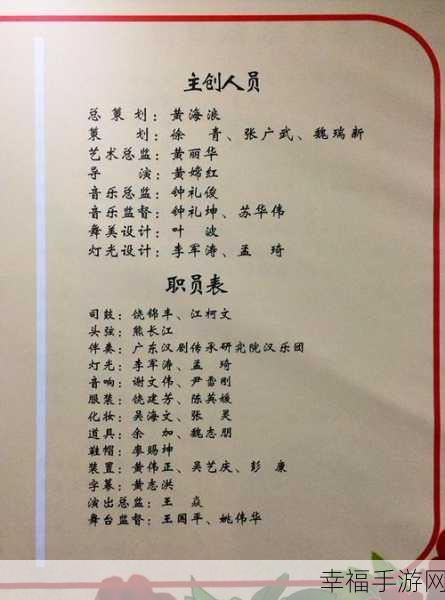 主创人员
总策划：黄海浪
策划：徐青、张广武、魏瑞新
艺术总监：黄丽华
导演：黄嫦红
音乐总监：钟礼俊
音乐监督：钟礼坤、苏华伟
舞美设计：叶波
灯光设计：李军涛、孟琦
职员表
司鼓：饶锦丰、江柯文
头弦：熊长江
伴奏：广东汉剧传承研究院汉乐团
灯光：李军涛、孟琦
音响：谢文伟、尹雷刚
服装：饶建芳、陈英媛
化妆：吴海文、张灵
道具：余加、魏志朋
鞋帽：廖赐坤
装置：黄伟正、吴艺庆、彭康
字幕：黄志洪
演出总监：王焱
舞台监督：王国平、姚伟华
幸福手游网